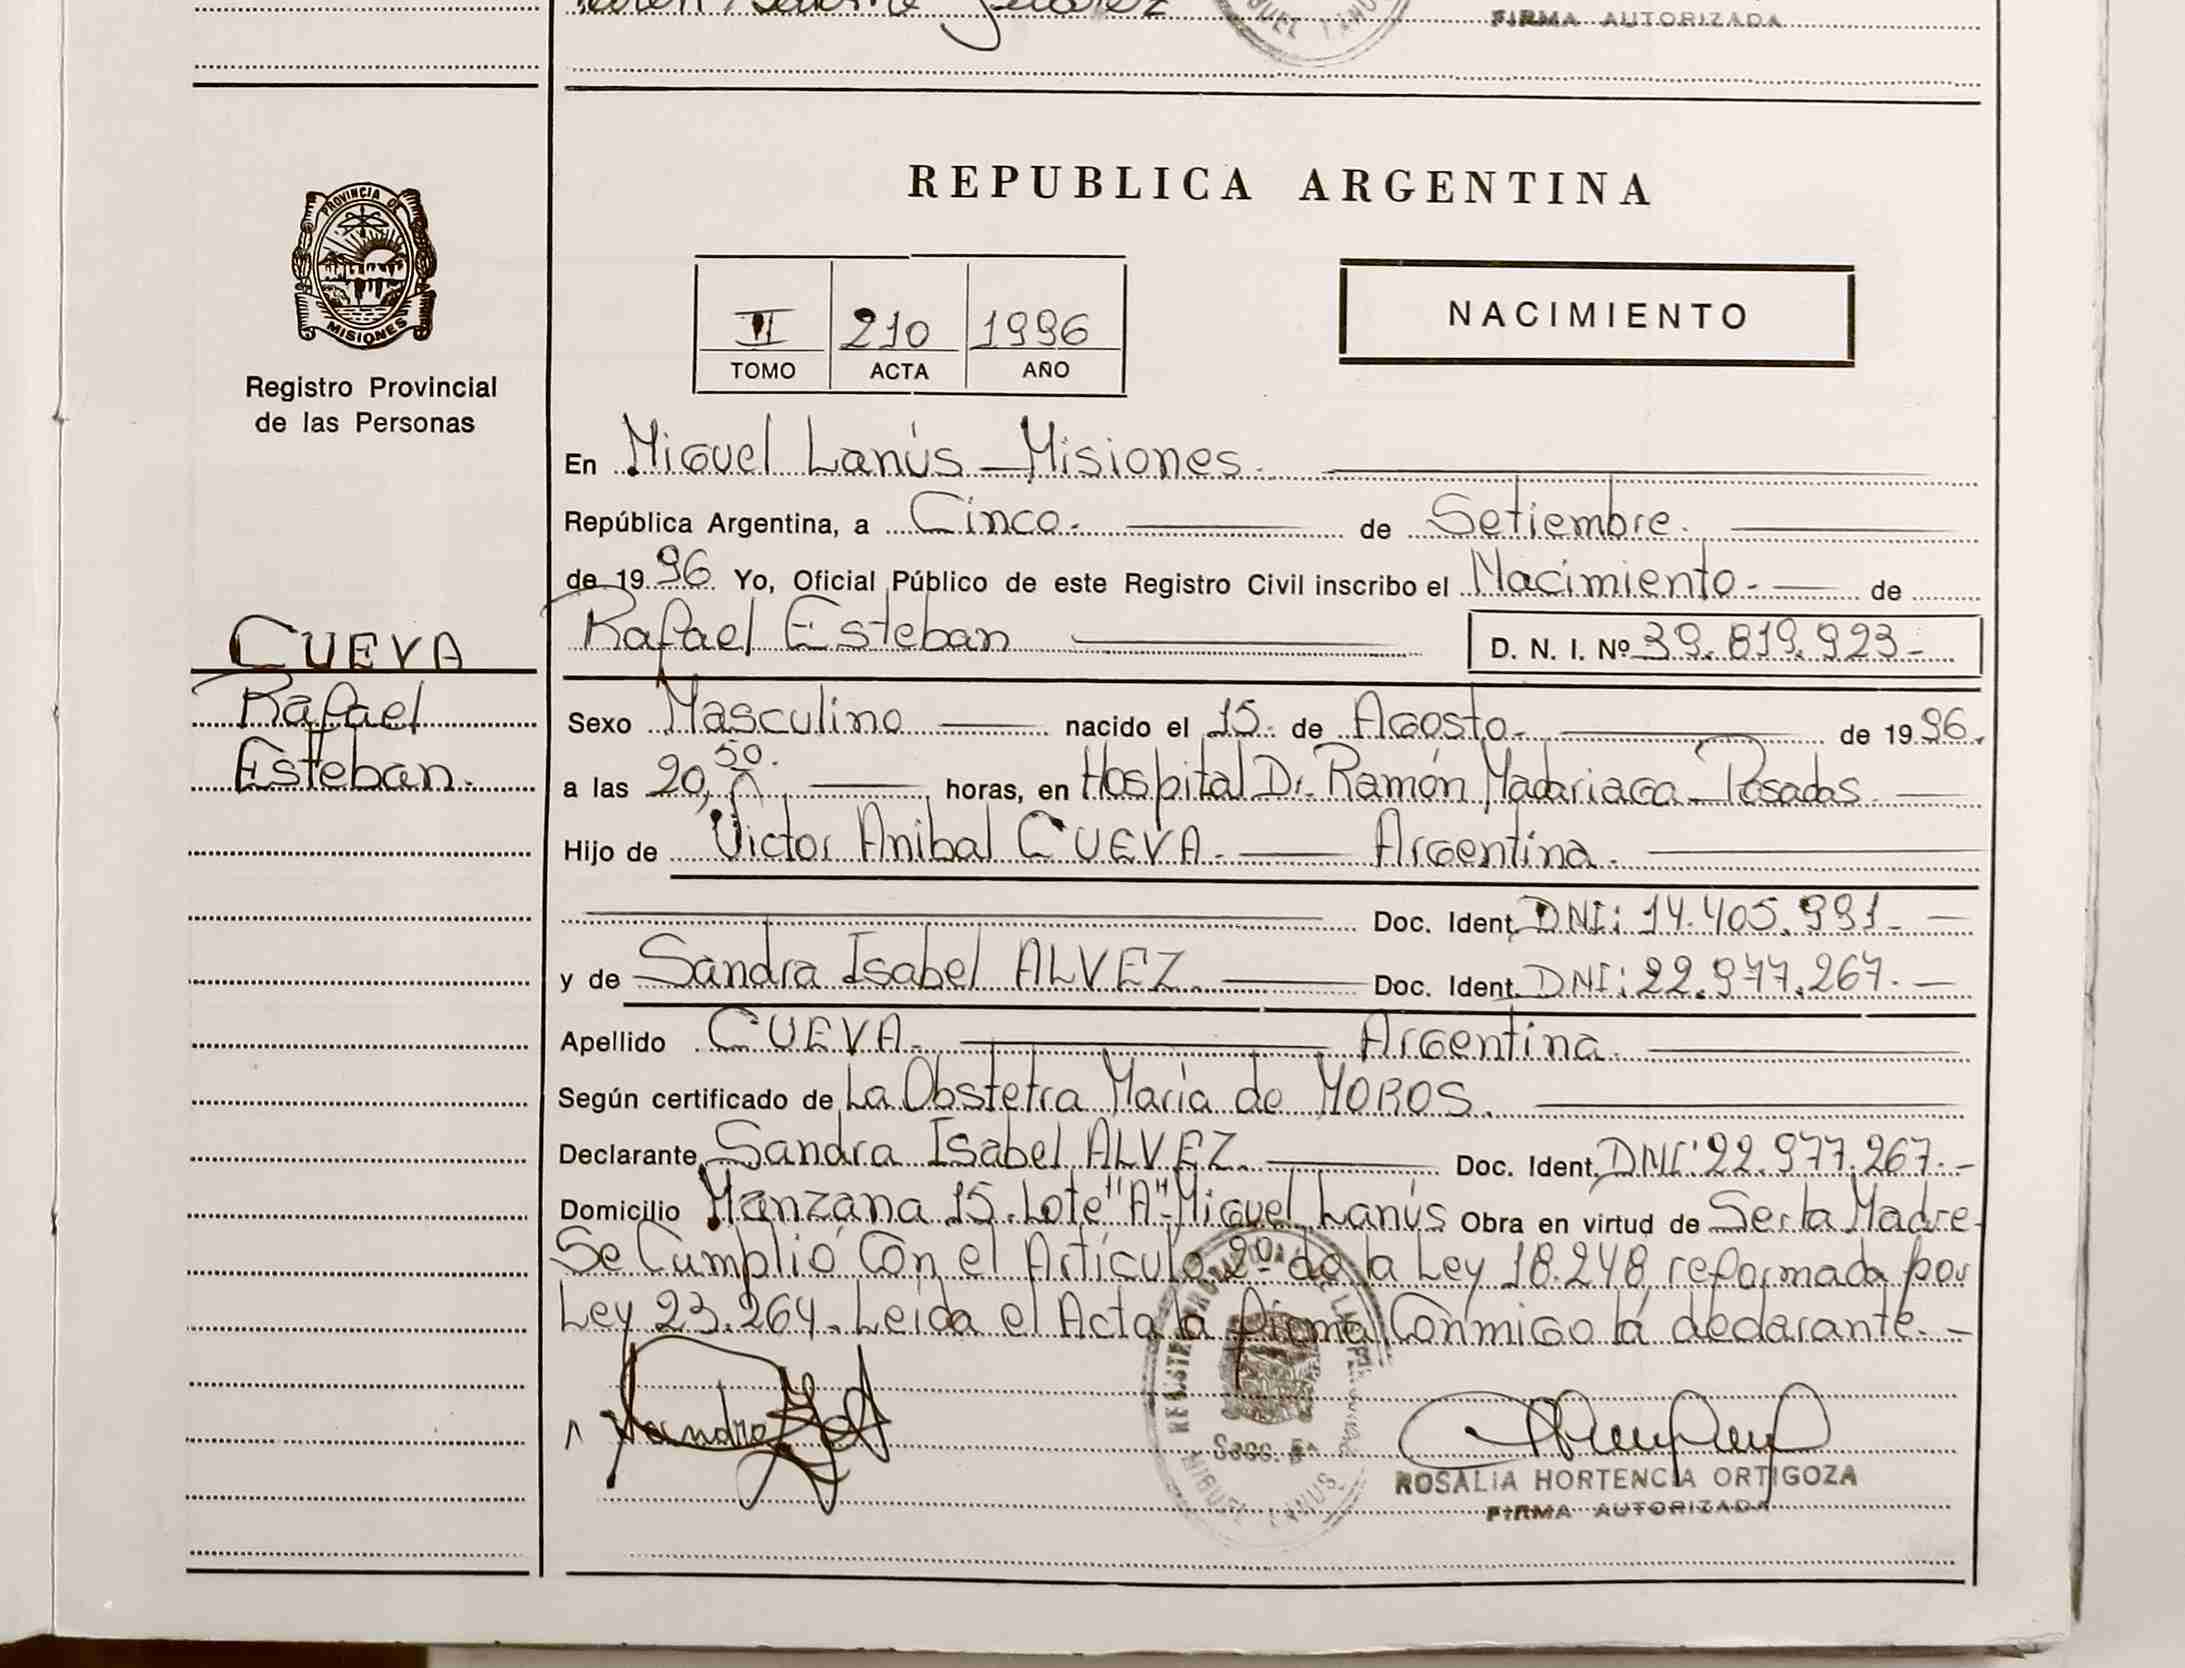 FIRMA AUTORIZADA
PROVINCIA DE
MISIONES
Registro Provincial
de las Personas
REPUBLICA ARGENTINA
II 210 1996
TOMO ACTA AÑO
NACIMIENTO
En Miguel Lanús - Misiones.
República Argentina, a Cinco. de Setiembre.
de 1996 Yo, Oficial Público de este Registro Civil inscribo el Nacimiento. de
CUEVA
Rafael
Esteban.
Rafael Esteban D. N. I. Nº 39.819.923-
Sexo Masculino nacido el 15. de Agosto. de 1996.
a las 20,50. horas, en Hospital Dr. Ramón Madariaga - Posadas.
Hijo de Victor Anibal CUEVA. Argentina.
Doc. Ident. DNI: 14.405.991.-
y de Sandra Isabel ALVEZ. Doc. Ident. DNI: 22.977.267.-
Apellido CUEVA. Argentina.
Según certificado de La Obstetra María de MOROS.
Declarante Sandra Isabel ALVEZ. Doc. Ident. DNI: 22.977.267.-
Domicilio Manzana 15. Lote "A"- Miguel Lanús Obra en virtud de Ser la Madre.
Se Cumplió Con el Artículo 2º de la Ley 18.248 reformada por
Ley 23.264. Leída el Acta la firma Conmigo lá declarante.-
Secc. 5ª
MIGUEL LANUS
ROSALIA HORTENCIA ORTIGOZA
FIRMA AUTORIZADA